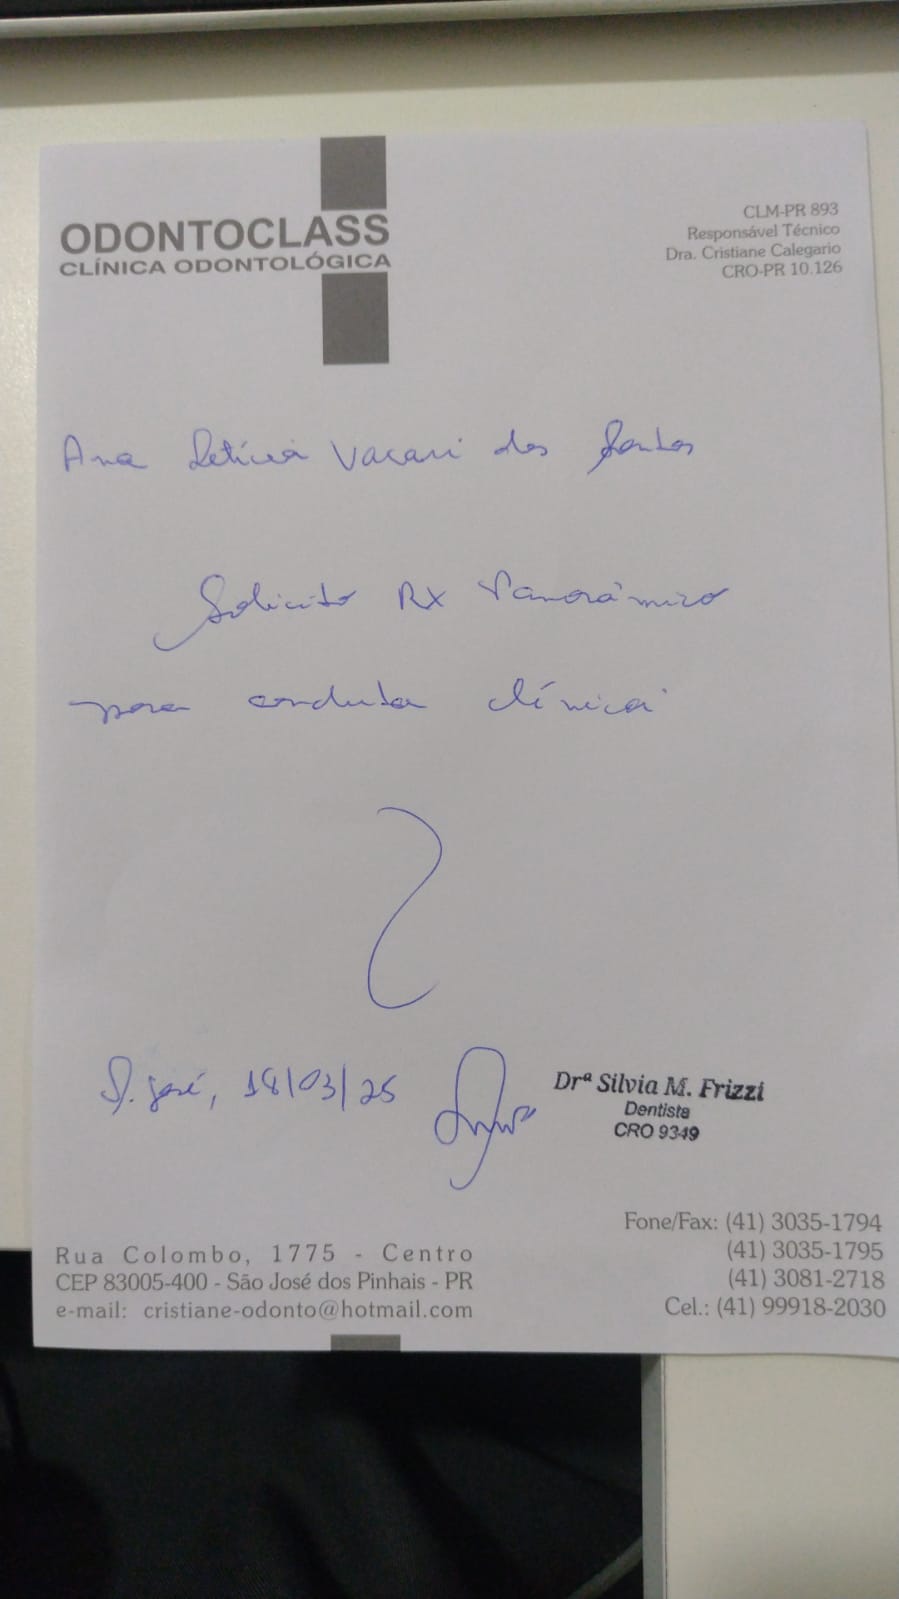 ODONTOCLASS
CLÍNICA ODONTOLÓGICA
CLM-PR 893
Responsável Técnico
Dra. Cristiane Calegario
CRO-PR 10.126
Ana Letícia Vacari dos Santos
Solicito RX Panorâmico
para conduta clínica
S. José, 18/03/25
Drª Silvia M. Frizzi
Dentista
CRO 9349
Rua Colombo, 1775 - Centro
CEP 83005-400 - São José dos Pinhais - PR
e-mail: cristiane-odonto@hotmail.com
Fone/Fax: (41) 3035-1794
(41) 3035-1795
(41) 3081-2718
Cel.: (41) 99918-2030